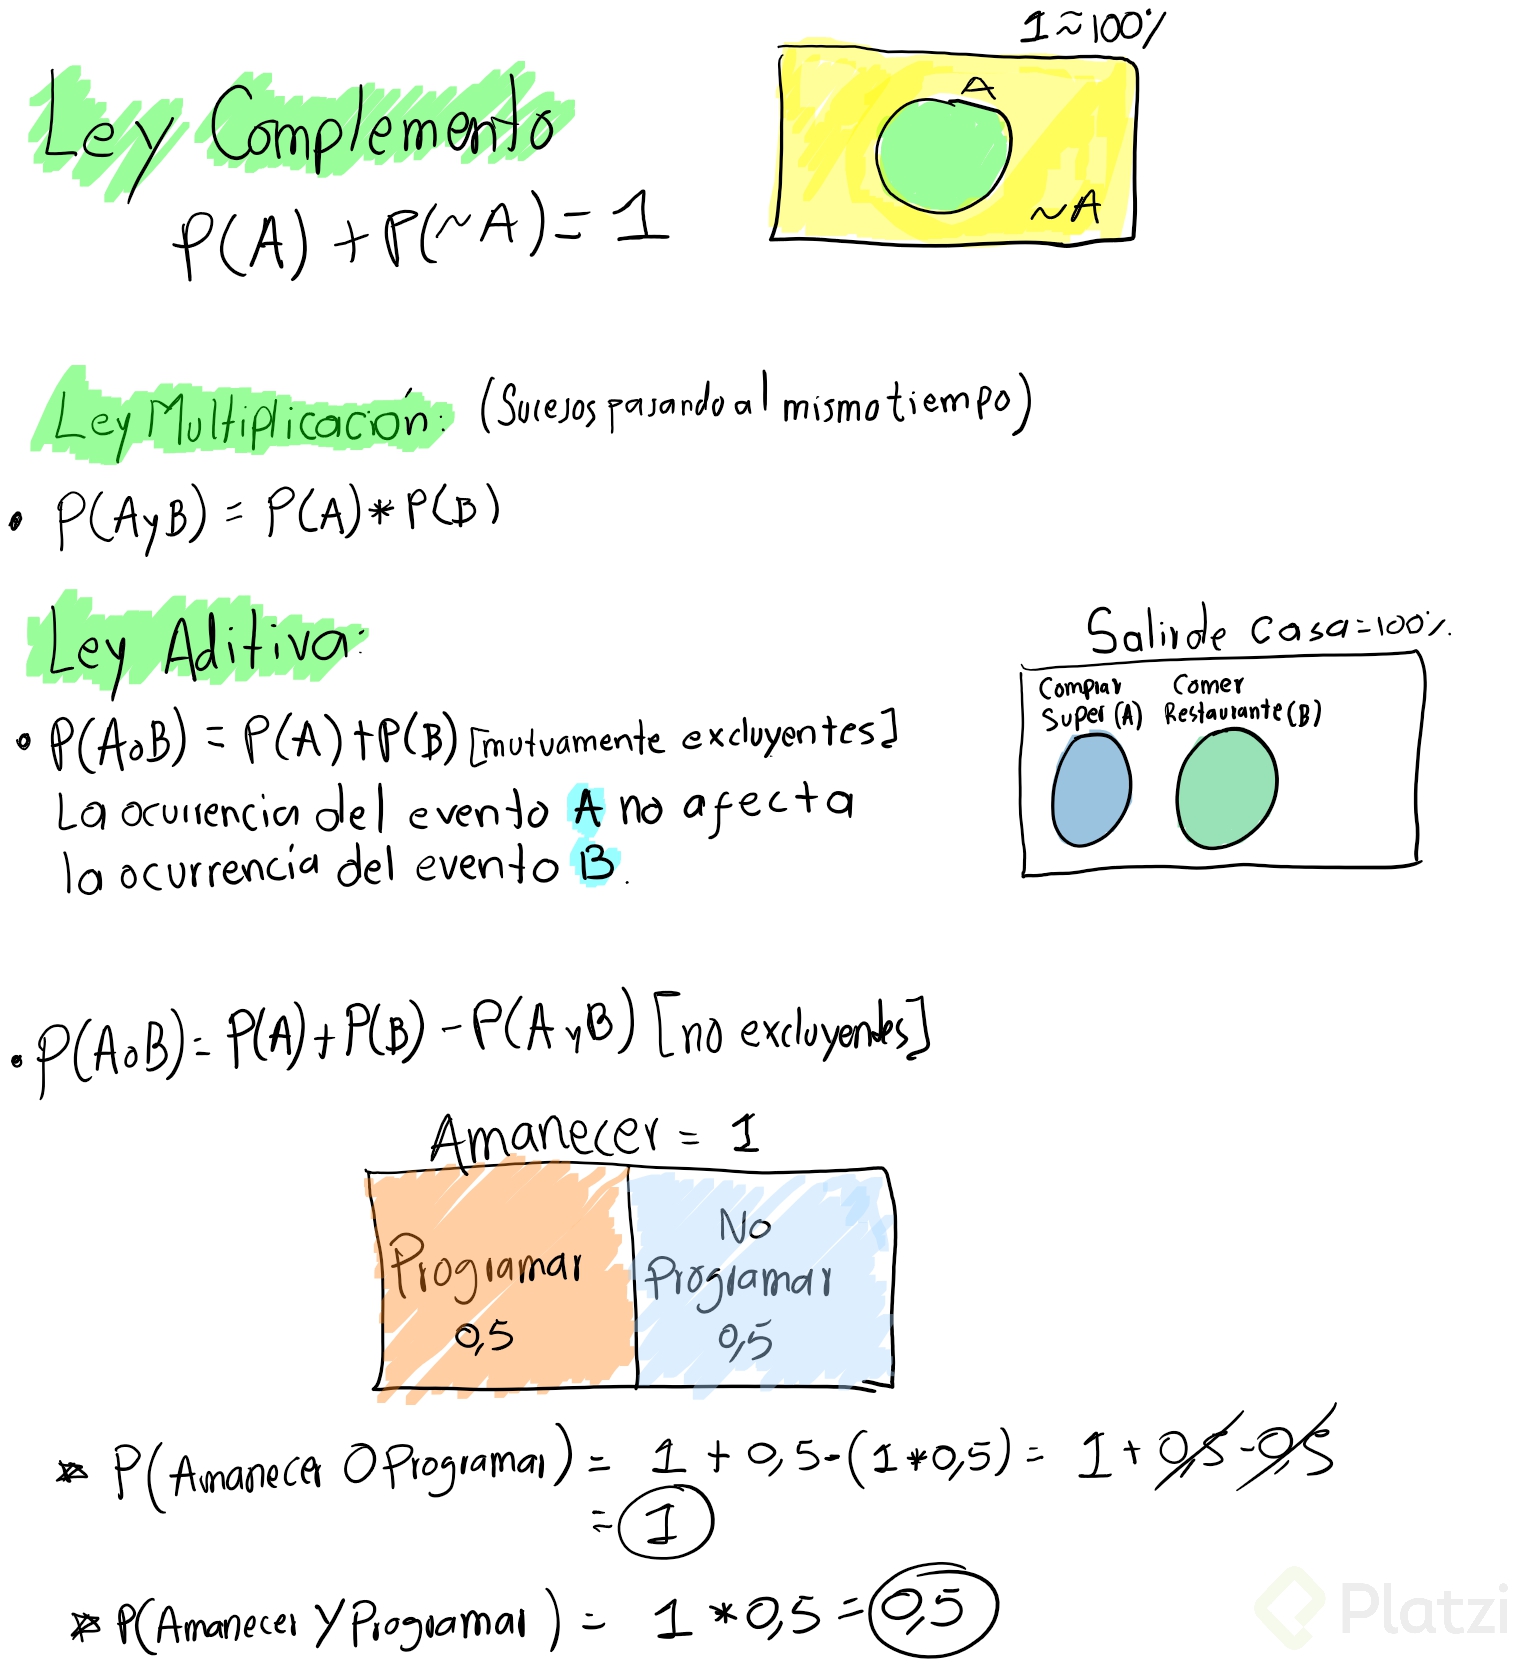 1 ≈ 100%
Ley Complemento
A
~A
P(A) + P(~A) = 1
Ley Multiplicación: (Sucesos pasando al mismo tiempo)
• P(A y B) = P(A) * P(B)
Ley Aditiva:
Salir de casa = 100%.
Comprar Super (A)
Comer Restaurante (B)
• P(A o B) = P(A) + P(B) [mutuamente excluyentes]
La ocurrencia del evento A no afecta
la ocurrencia del evento B.
• P(A o B) = P(A) + P(B) - P(A y B) [no excluyentes]
Amanecer = 1
Programar
0,5
No
Programar
0,5
* P(Amanecer O Programar) = 1 + 0,5 - (1 * 0,5) = 1 + 0,5 - 0,5
= 1
* P(Amanecer Y Programar) = 1 * 0,5 = 0,5
Platzi